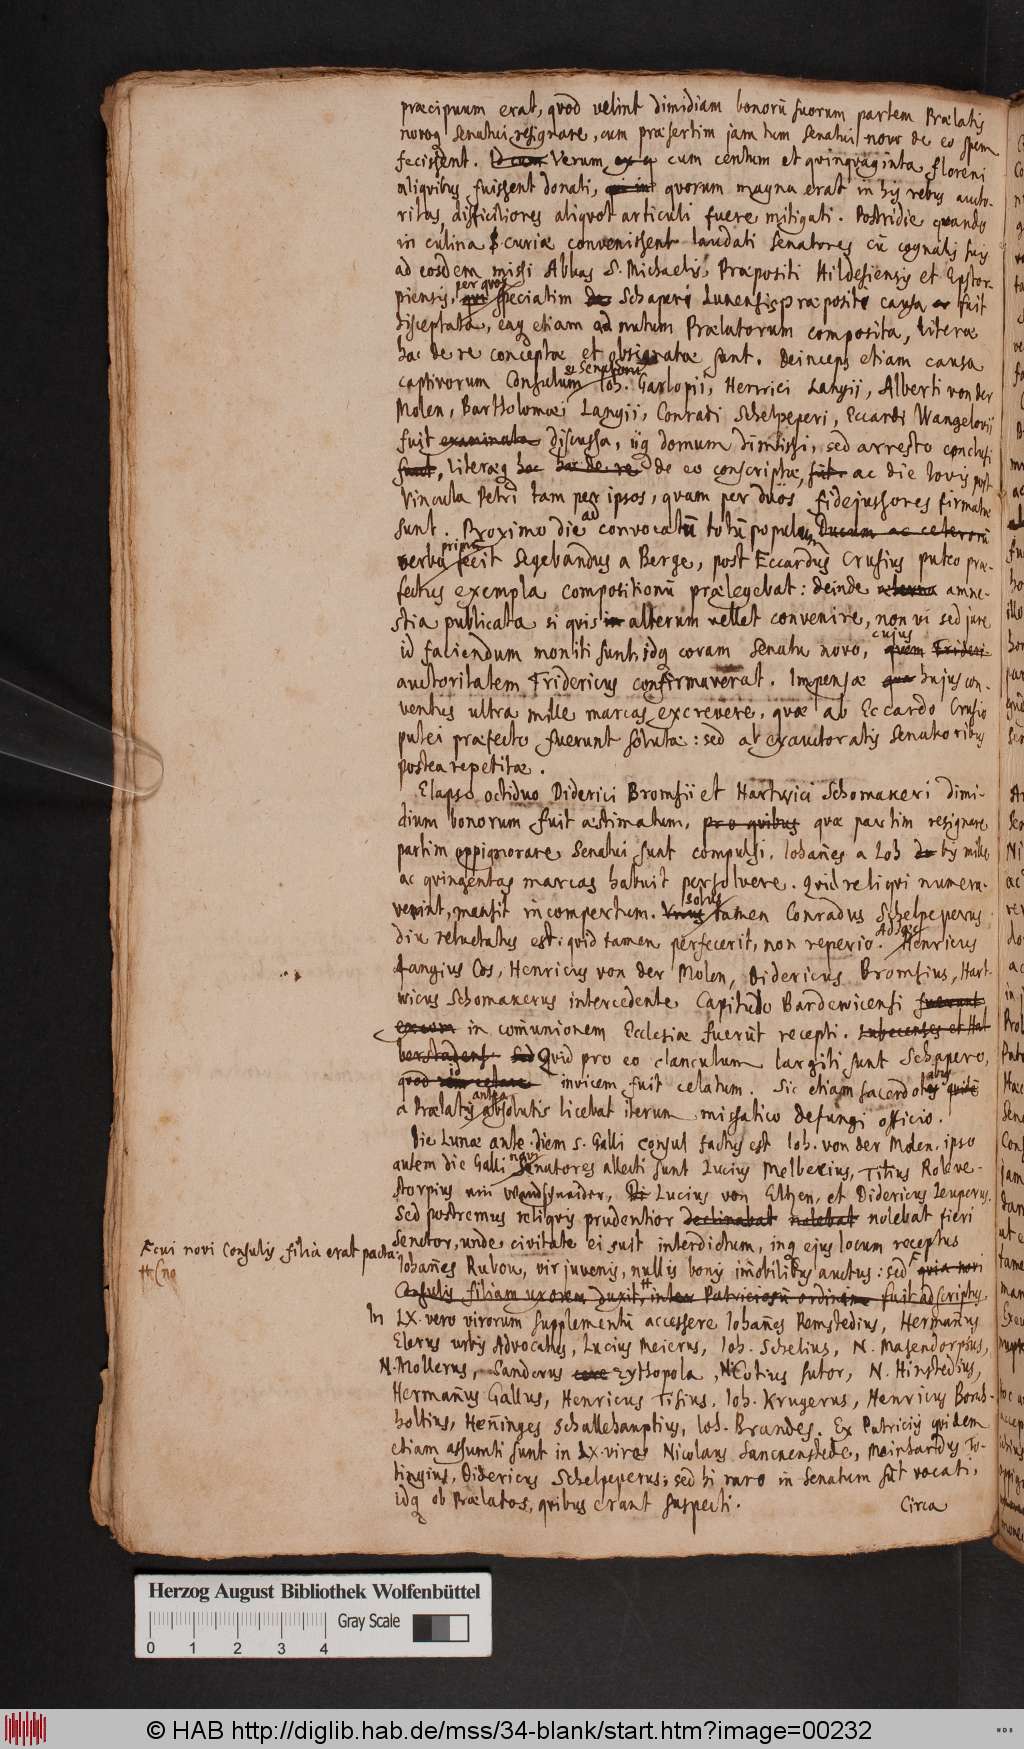 præcipuum erat, quod velint dimidiam bonorū suorum partem Prælatis
novoq Senatui resignare, cum præsertim jam tum Senatui novo de eo spem
fecissent. Verum cum centum et quinquaginta floreni
aliquibus fuissent donati, quorum magna erat in his rebus aucto-
ritas, difficiliores aliquot articuli fuere mitigati. Postridie quando
in culina curiæ convenissent laudati Senatores cū cognatis suis
ad eosdem missi Abbas S. Michaelis, Præpositi Hildesiensis et Epstor-
piensis, per quos speciatim Schaperi Lunensis præpositi causa fuit
disceptata, eaq etiam ad nutum Prælatorum composita, literæ
hac de re conceptæ et obsignatæ sunt. Deinceps etiam causa
captivorum Consulum et Senatorū Joh. Garlopii, Henrici Langii, Alberti von der
Molen, Bartholomæi Langii, Conradi Schelpeperi, Eccardi Wangelovii
fuit examinata discussa, iiq domum dimissi, sed arresto conclusi
sunt, literæq hac de re de eo conscriptæ, ac die Jovis post
Vincula Petri tam per ipsos, quam per duos fidejussores firmatæ
sunt. Proximo die ad convocatū totū populum Ducum ac ceterorū
verba prima fecit Segebandus a Berge, post Eccardus Crusius puteo præ-
fectus exempla compositionū prælegebat: deinde amne-
stia publicata si quis in alterum vellet convenire, non vi sed jure
id faciendum moniti sunt, idq coram Senatu novo, cujus quem Frideri
auctoritatem Fridericus confirmaverat. Impensæ hujus con-
ventus ultra mille marcas excrevere, quæ ab Eccardo Crusio
putei præfecto fuerunt solutæ: sed ab exauctoratis Senatoribus
postea repetitæ.
Elapso octiduo Diderici Bromsii et Hartwici Schomakeri dimi-
dium bonorum fuit æstimatum, pro quibus quæ partim resignare
partim oppignorare Senatui sunt compulsi. Johañes a Loh bis mille
ac quingentas marcas habuit persolvere. Quid reliqui numera-
verint, mansit incompertum. Unus solus tamen Conradus Schelpeperus
diu reluctatus est: quid tamen perfecerit, non reperio. Henricus
Langius Cos, Henricus von der Molen, Didericus Bromsius, Hart-
wicus Schomakerus intercedente Capitulo Bardewicensi fuerunt
excom in com̄unionem Ecclesiæ fuerūt recepti. Lubecenses et Hal
berstadens. Sed Quid pro eo clanculum largiti sunt Schapero,
quod id invicem fuit celatum. Sic etiam Sacerdotibus
a Prælatis antea absolutis licebat iterum missatico defungi officio.
Die Lunæ ante diem S. Galli Consul factus est Joh. von der Molen, ipso
autem die Galli novi Senatores allecti sunt Lucius Molbekius, Titius Roleve-
storpius ein Wandschneider, Lucius von Eltzen, et Didericus Zeuperus.
Sed postremus reliquis prudentior declinabat nolebat nolebat fieri
Senator, unde civitate ei fuit interdictum, inq ejus locum receptus
Fcui novi Consulis filia erat pacta
Johañes Rubow, vir juvenis, nullis bonis im̄obilibus auctus: sed quia novi
Consulis filiam uxorem duxit, inter Patriciosū ordinem fuit adscriptus.
In LX. vero virorum supplementū accessere Johañes Remstedius, Hermañus
Elerus urbis Advocatus, Lucius Meierus, Joh. Schelius, N. Masendorpius,
N. Mollerus, Sanderus Zythopola, N. Cotius sutor, N. Hinstedius,
Hermañus Gallus, Henricus Titius, Joh. Krugerus, Henricus Borch-
holtius, Heñinges Schallehauptius, Joh. Brandes. Ex Patriciis quidem
etiam assumti sunt in LX-viros Nicolaus Sanckenstede, Meinhardus To-
bingius, Didericus Schelpeperus; sed hi raro in Senatum sūt vocati,
idq ob Prælatos, quibus erant suspecti.
Circa
Herzog August Bibliothek Wolfenbüttel
Gray Scale
0 1 2 3 4
© HAB http://diglib.hab.de/mss/34-blank/start.htm?image=00232